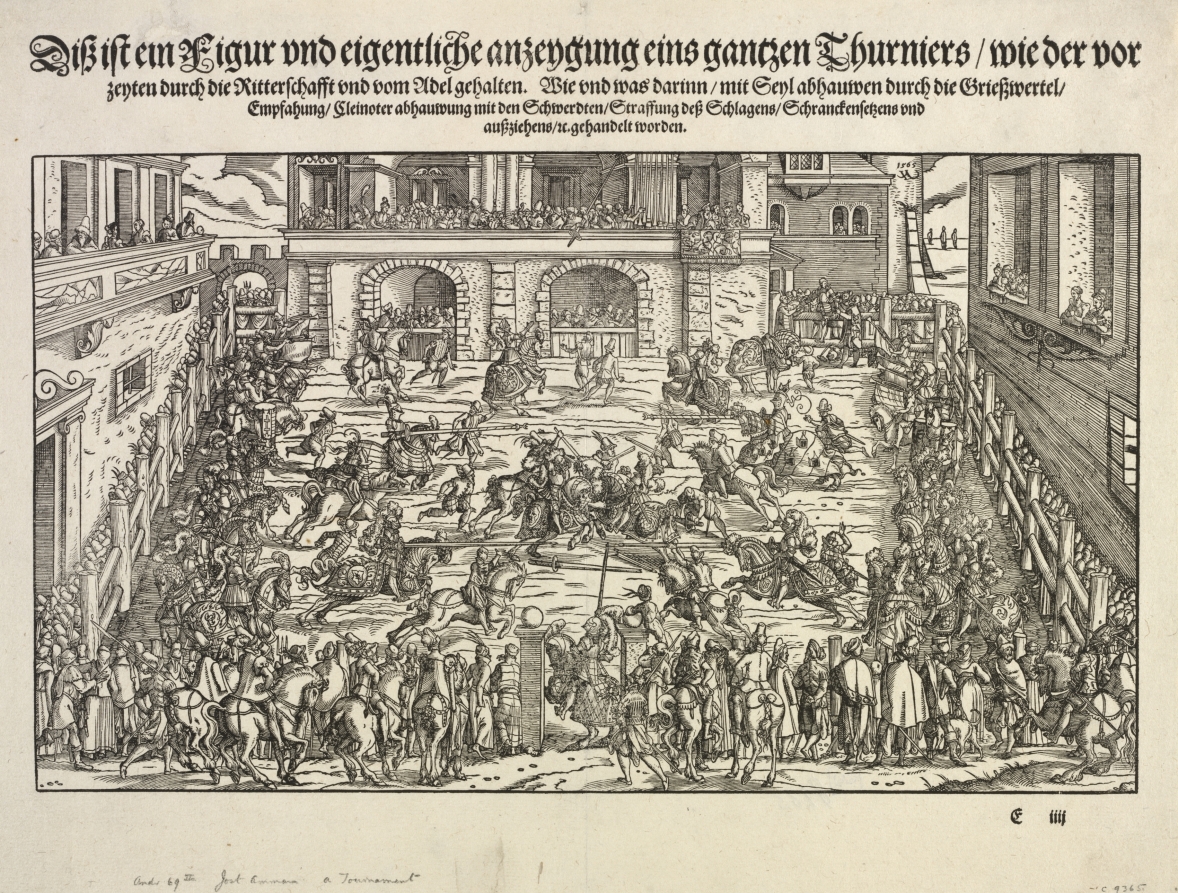 Diß ist ein Figur vnd eigentliche anzeygung eins gantzen Thurniers / wie der vor
zeyten durch die Ritterschafft vnd vom Adel gehalten. Wie vnd was darinn / mit Seyl abhauwen durch die Grießwertel /
Empfahung / Cleinoter abhauwung mit den Schwerdten / Straffung deß Schlagens / Schranckensetzens vnd
außziehens / ꝛc. gehandelt worden.
1565
E iiij
Jost Amman a Tournament